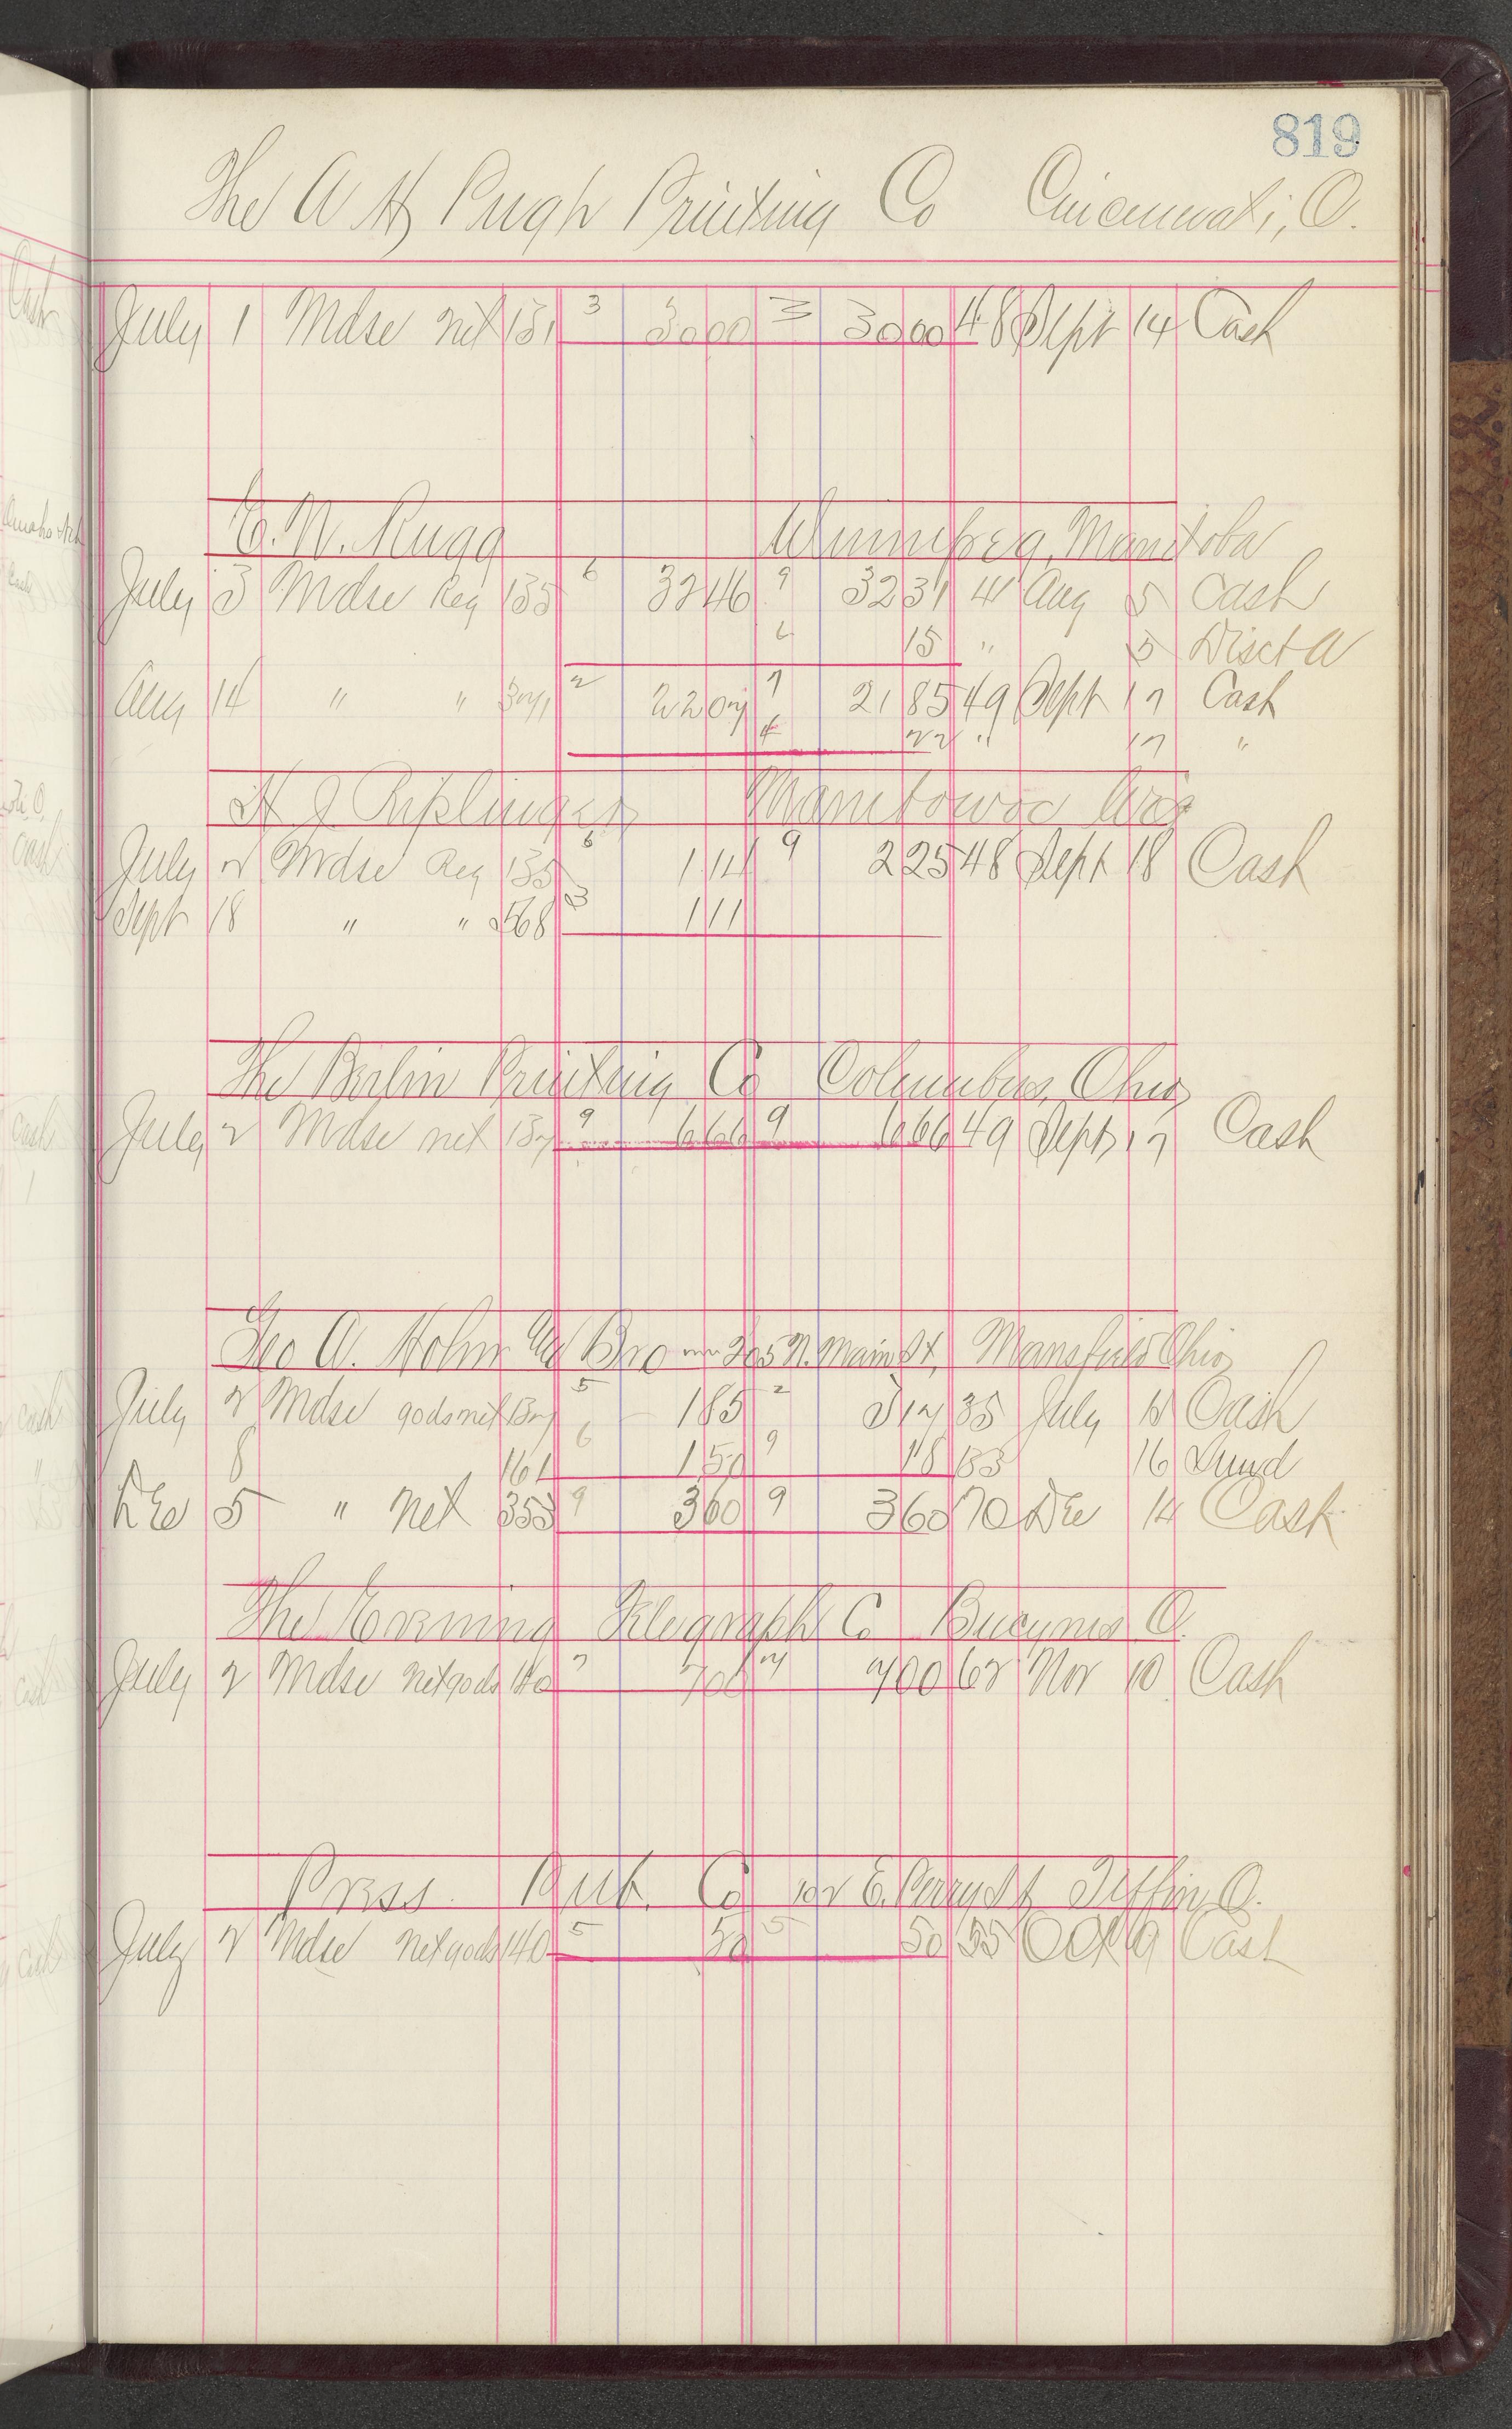 819
The A H Pugh Printing Co Cincinnati, O.
July 1 Mdse net 131 3 3000 3 3000 48 Sept 14 Cash
E. N. Rugg Winnipeg, Manitoba
July 3 Mdse Reg 135 6 3246 9 3231 41 Aug 5 Cash
6 15 " 5 Disct
Aug 14 " " 2 2207 7 2185 49 Sept 17 Cash
4 22 " 17 "
H J Riplinger Manitowoc Wis
July 2 Mdse Reg 135 6 114 9 225 48 Sept 18 Cash
Sept 18 " " 3 111
The Berlin Printing Co Columbus, Ohio
July 2 Mdse net 137 9 666 9 666 49 Sept 17 Cash
Geo A. Hohn & Bro 205 N. Main St, Mansfield Ohio
July 2 Mdse gods net 137 5 185 2 317 35 July 15 Cash
8 161 6 150 9 18 33 16
Dec 5 " net 353 9 360 9 360 70 Dec 14 Cash
The Evening Telegraph Co Bucyrus O.
July 2 Mdse net gods 140 7 700 7 700 62 Nov 10 Cash
Press Pub. Co E. Perry St Tiffin, O.
July 2 Mdse net gods 140 5 50 5 50 55 Oct 9 Cash